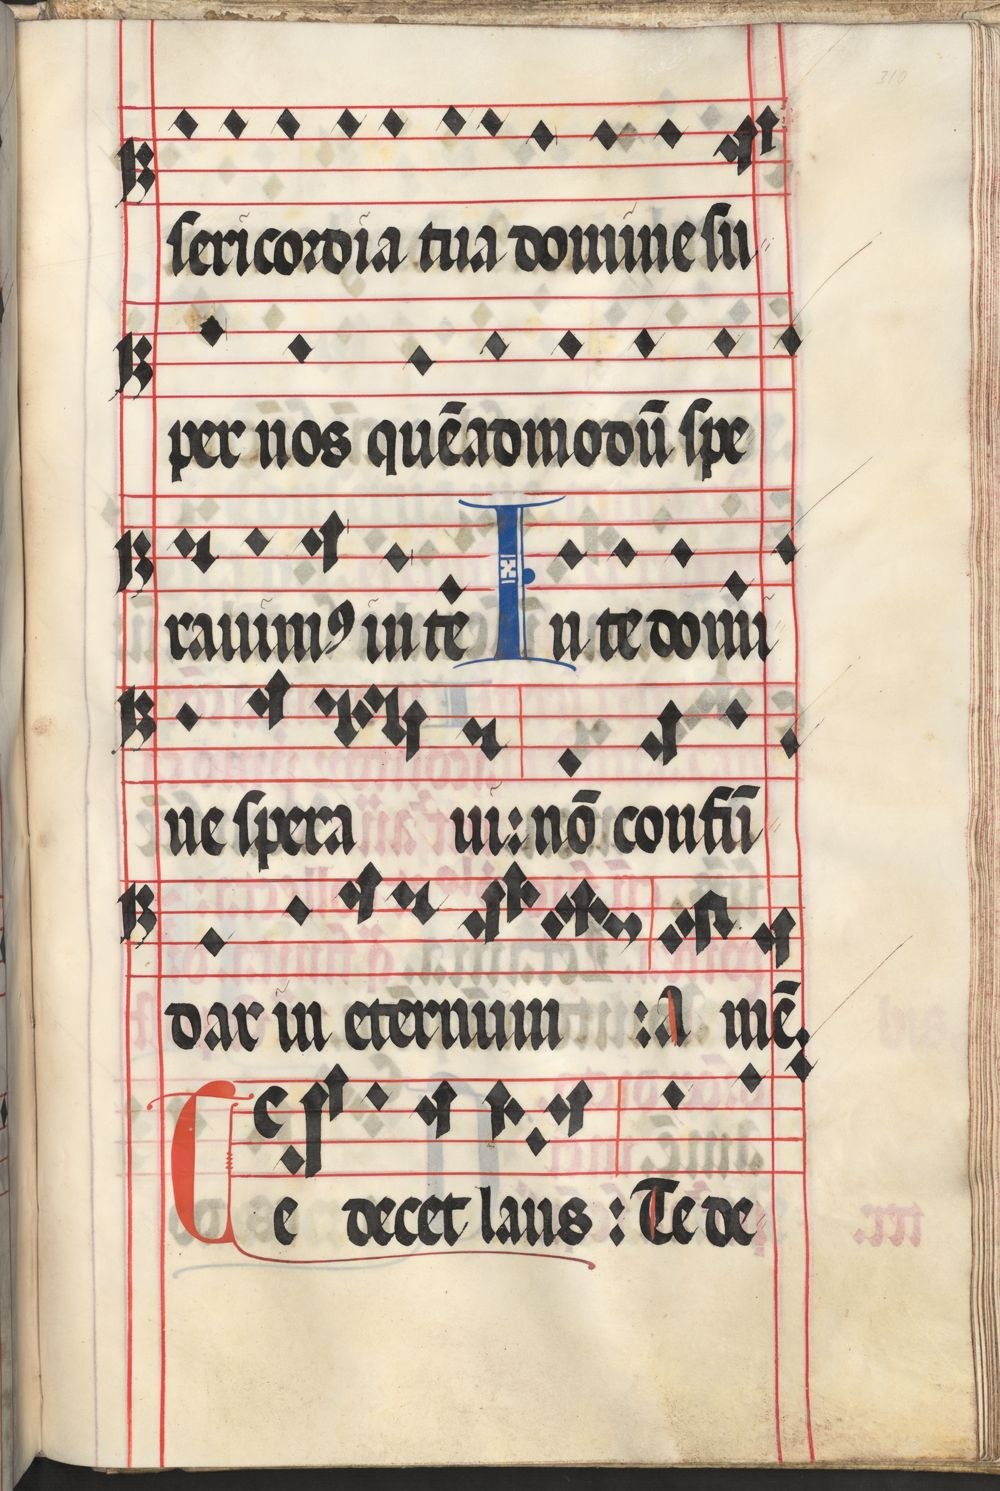 310
sericordia tua domine su
per nos quēadmodū spe
rauimꝰ in te In te domi
ne spera ui: nō confū
dar in eternum : A mē.
Te decet laus : Te de